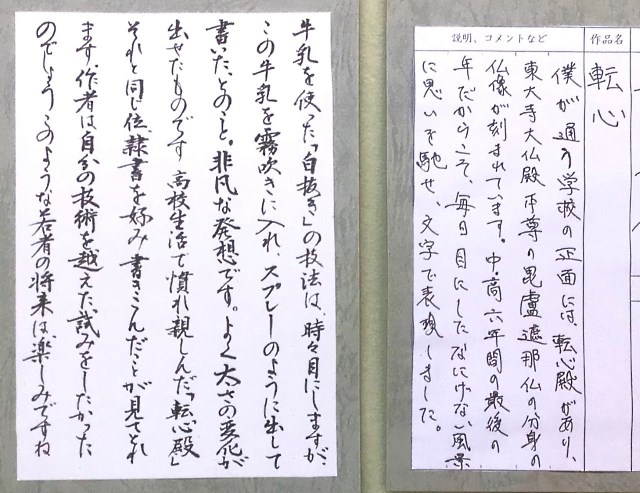 作品名
転心
説明、コメントなど
僕が通う学校の正面には、転心殿があり、
東大寺大仏殿本尊の毘盧遮那仏の分身の
仏像が刻まれています。中・高六年間の最後の
年だからこそ、毎日目にしたなにげない風景
に思いを馳せ、文字で表現しました。
牛乳を使った「白抜き」の技法は、時々目にしますが、
この牛乳を霧吹きに入れ、スプレーのように出して
書いた、とのこと。非凡な発想です。よく太さの変化が
出せたものです 高校生活で慣れ親しんだ「転心殿」
それと同じ位隷書を好み 書きこんだことが見てとれ
ます。作者は自分の技術を越えた、試みをしたかった
のでしょう このような若者の将来は、楽しみですね